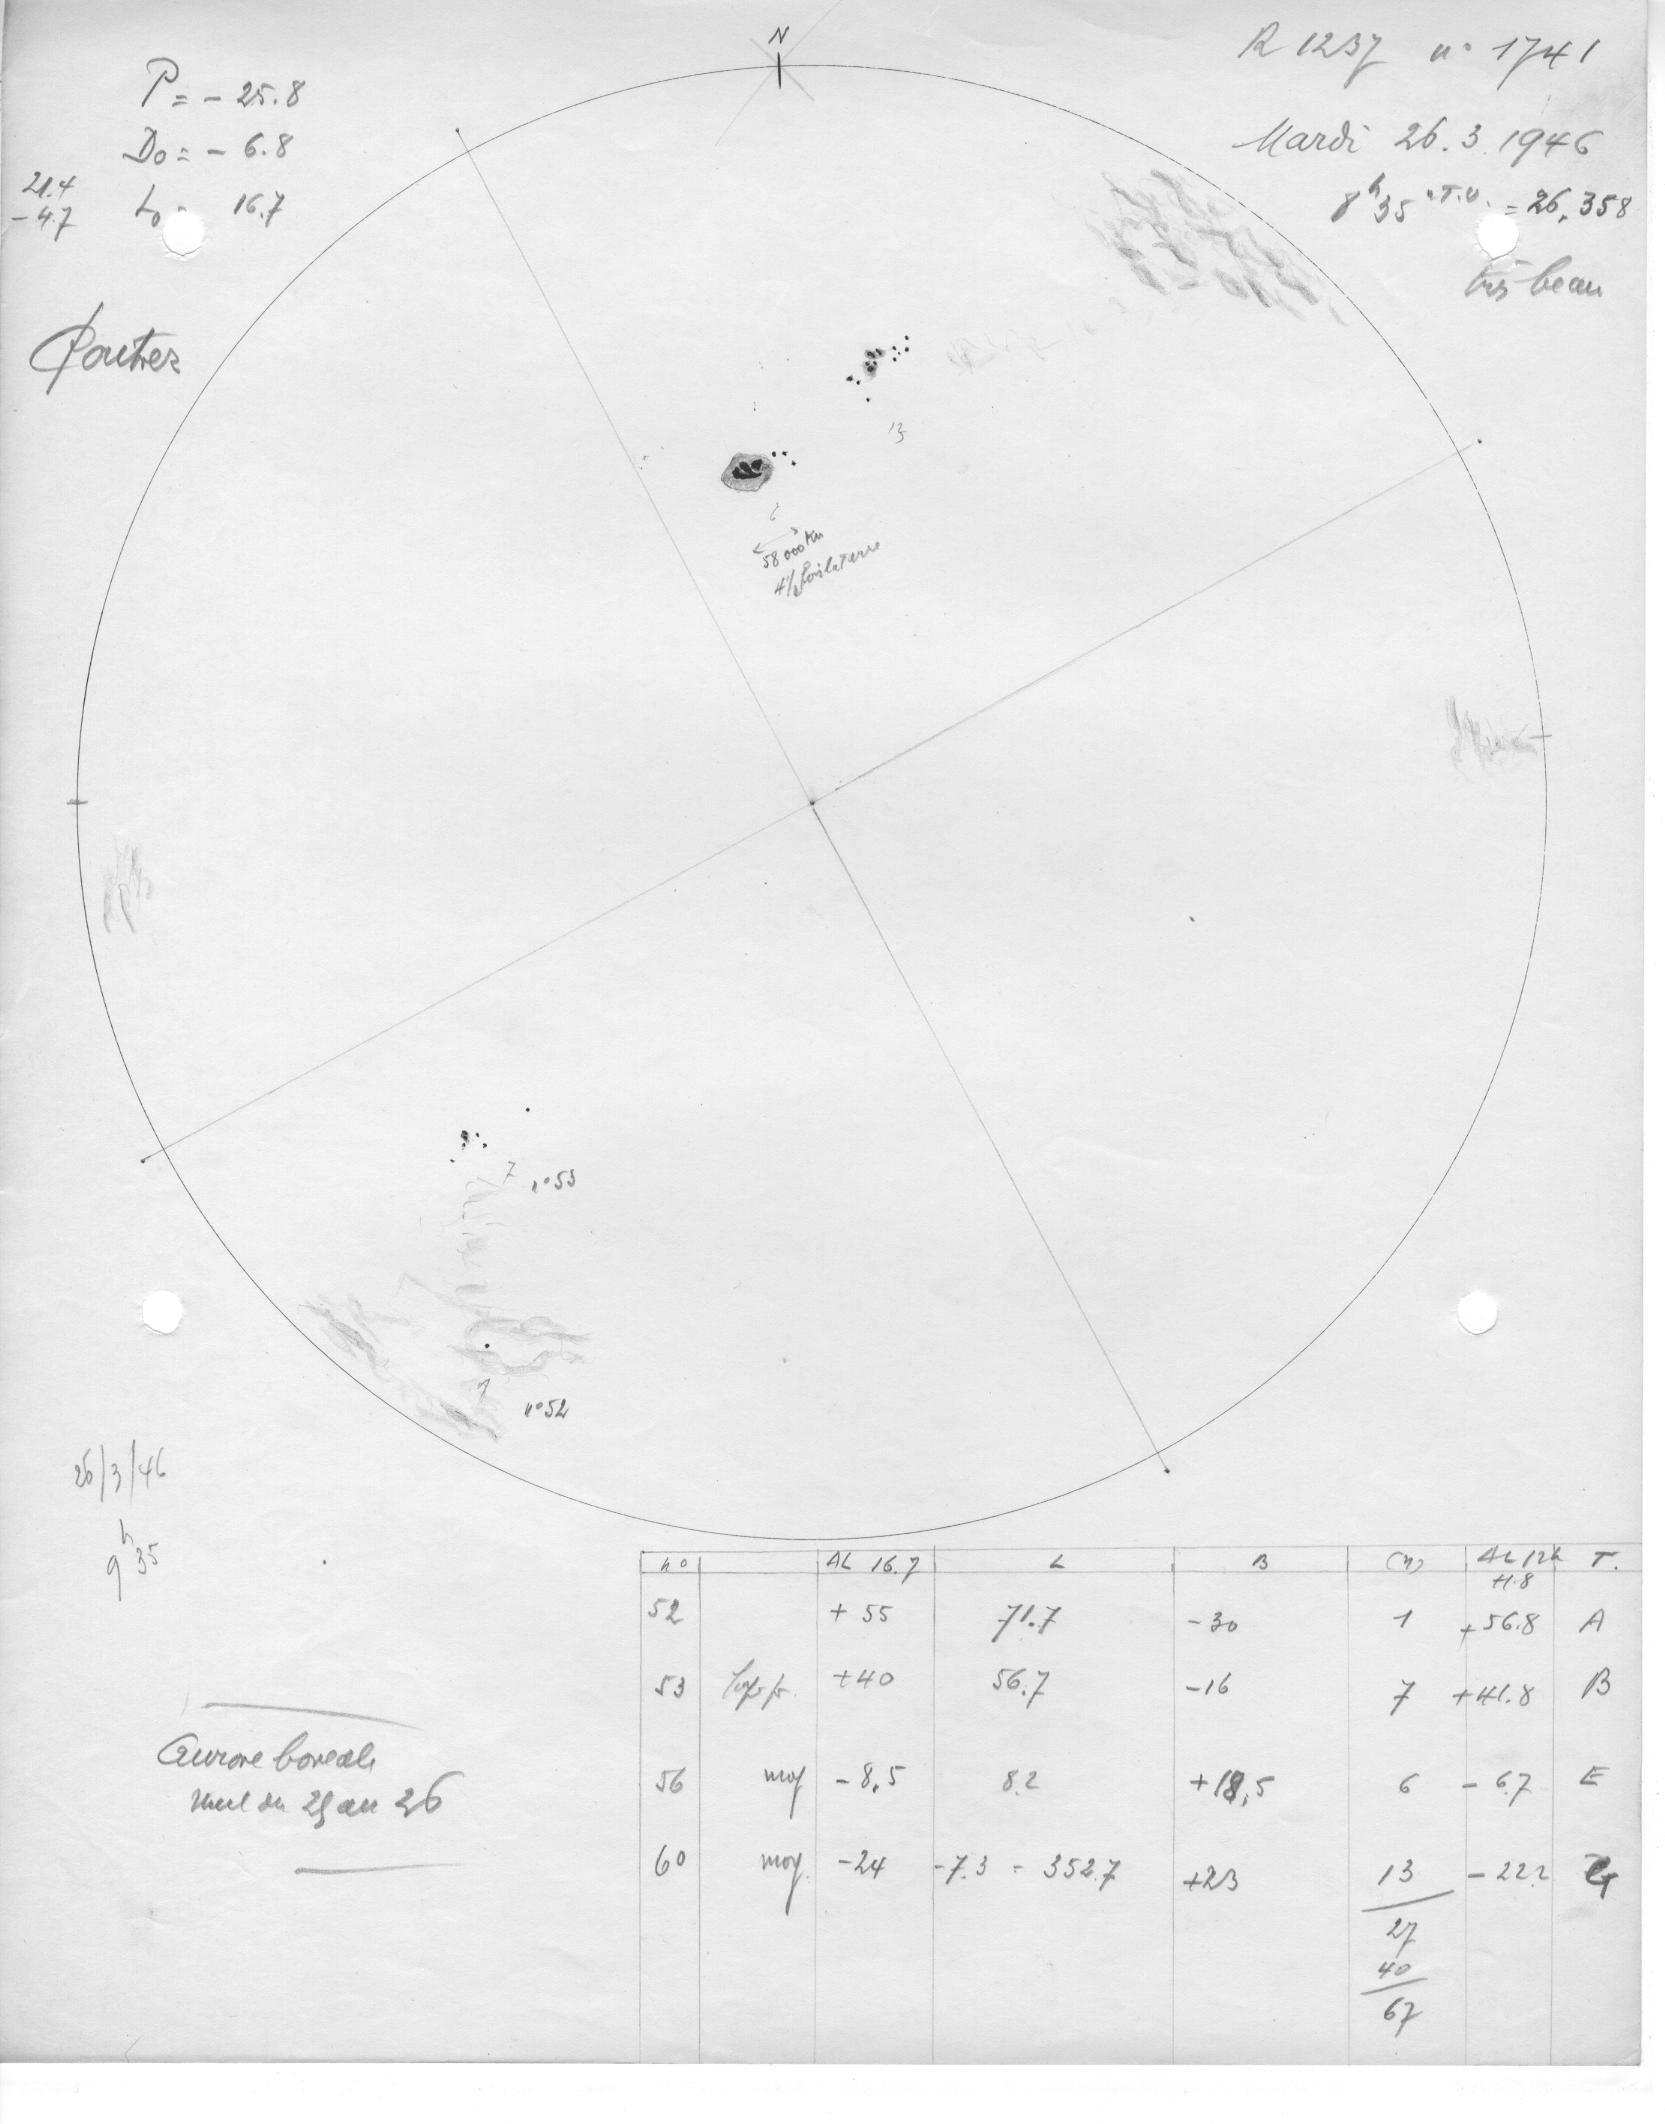 N
R 1237 n° 1741
P = - 25.8
Mardi 26.3.1946
D₀ = - 6.8
8ʰ35 T.U. = 26,358
21.4
- 4.7
L₀ = 16.7
très beau
13
6
58 000 Km
4 1/2 fois la Terre
7
n° 53
1
n° 52
26/3/46
9ʰ35
Aurore boréale
nuit du 25 au 26
n° AL 16.7 L B (n) AL 12h T.
+1.8
52 + 55 71.7 - 30 1 + 56.8 A
53 +40 56.7 - 16 7 + 41.8 B
56 moy - 8,5 8.2 + 18,5 6 - 6.7 E
60 moy. - 24 - 7.3 = 352.7 + 23 13 - 22.2 G
27
40
67